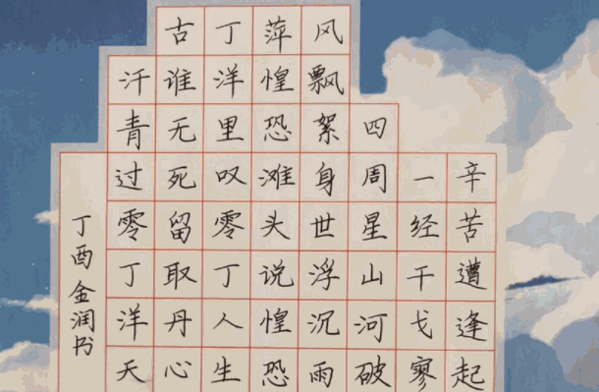 辛苦遭逢起
一经干戈寥
四周星山河破
风飘絮身世浮沉雨
萍惶恐滩头说惶恐
丁洋里叹零丁人生
古谁无死留取丹心
汗青过零丁洋天
丁酉金润书